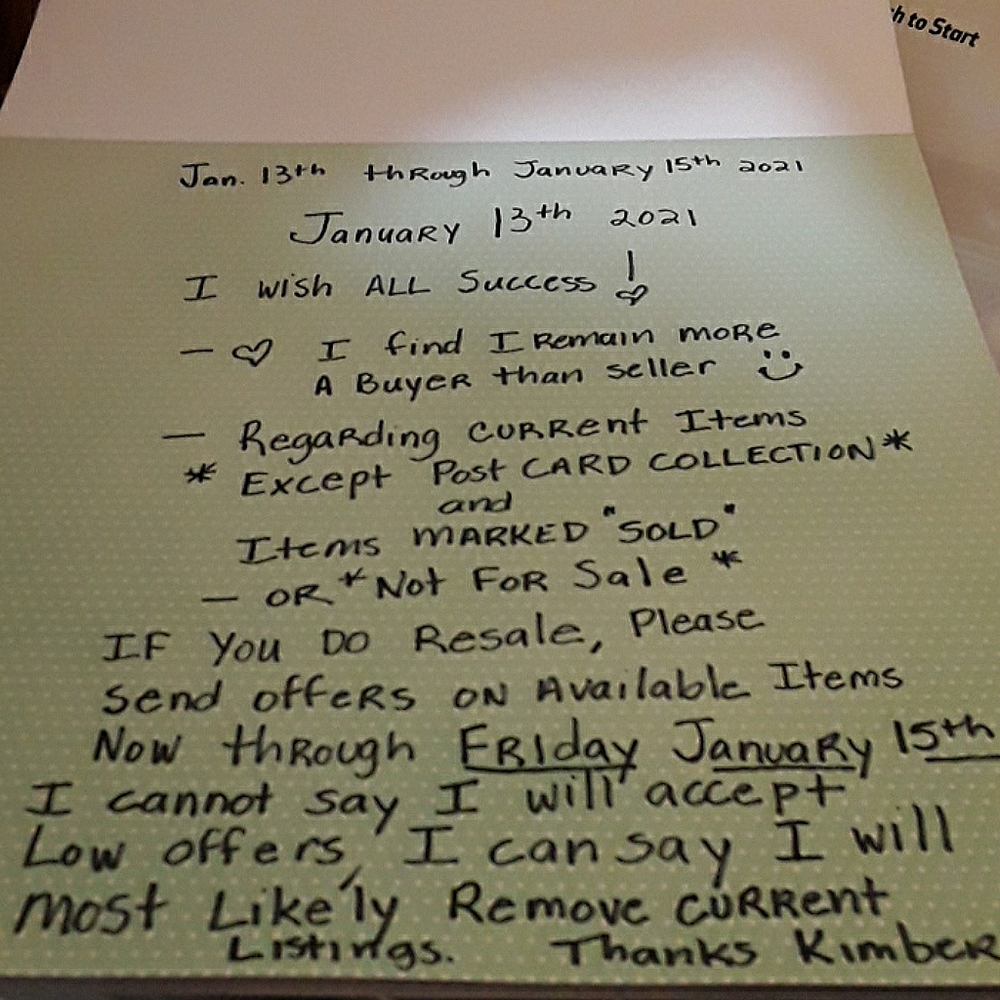 h to Start
Jan. 13th through January 15th 2021
January 13th 2021
I wish ALL Success!
— ♡ I find I Remain more
A Buyer than seller ☺
— Regarding current Items
* Except Post CARD COLLECTION *
and
Items MARKED "SOLD"
— OR * Not For Sale *
IF You Do Resale, Please
Send offers on Available Items
Now through Friday January 15th
I cannot say I will accept
Low offers, I can say I will
most Likely Remove current
Listings. Thanks Kimber